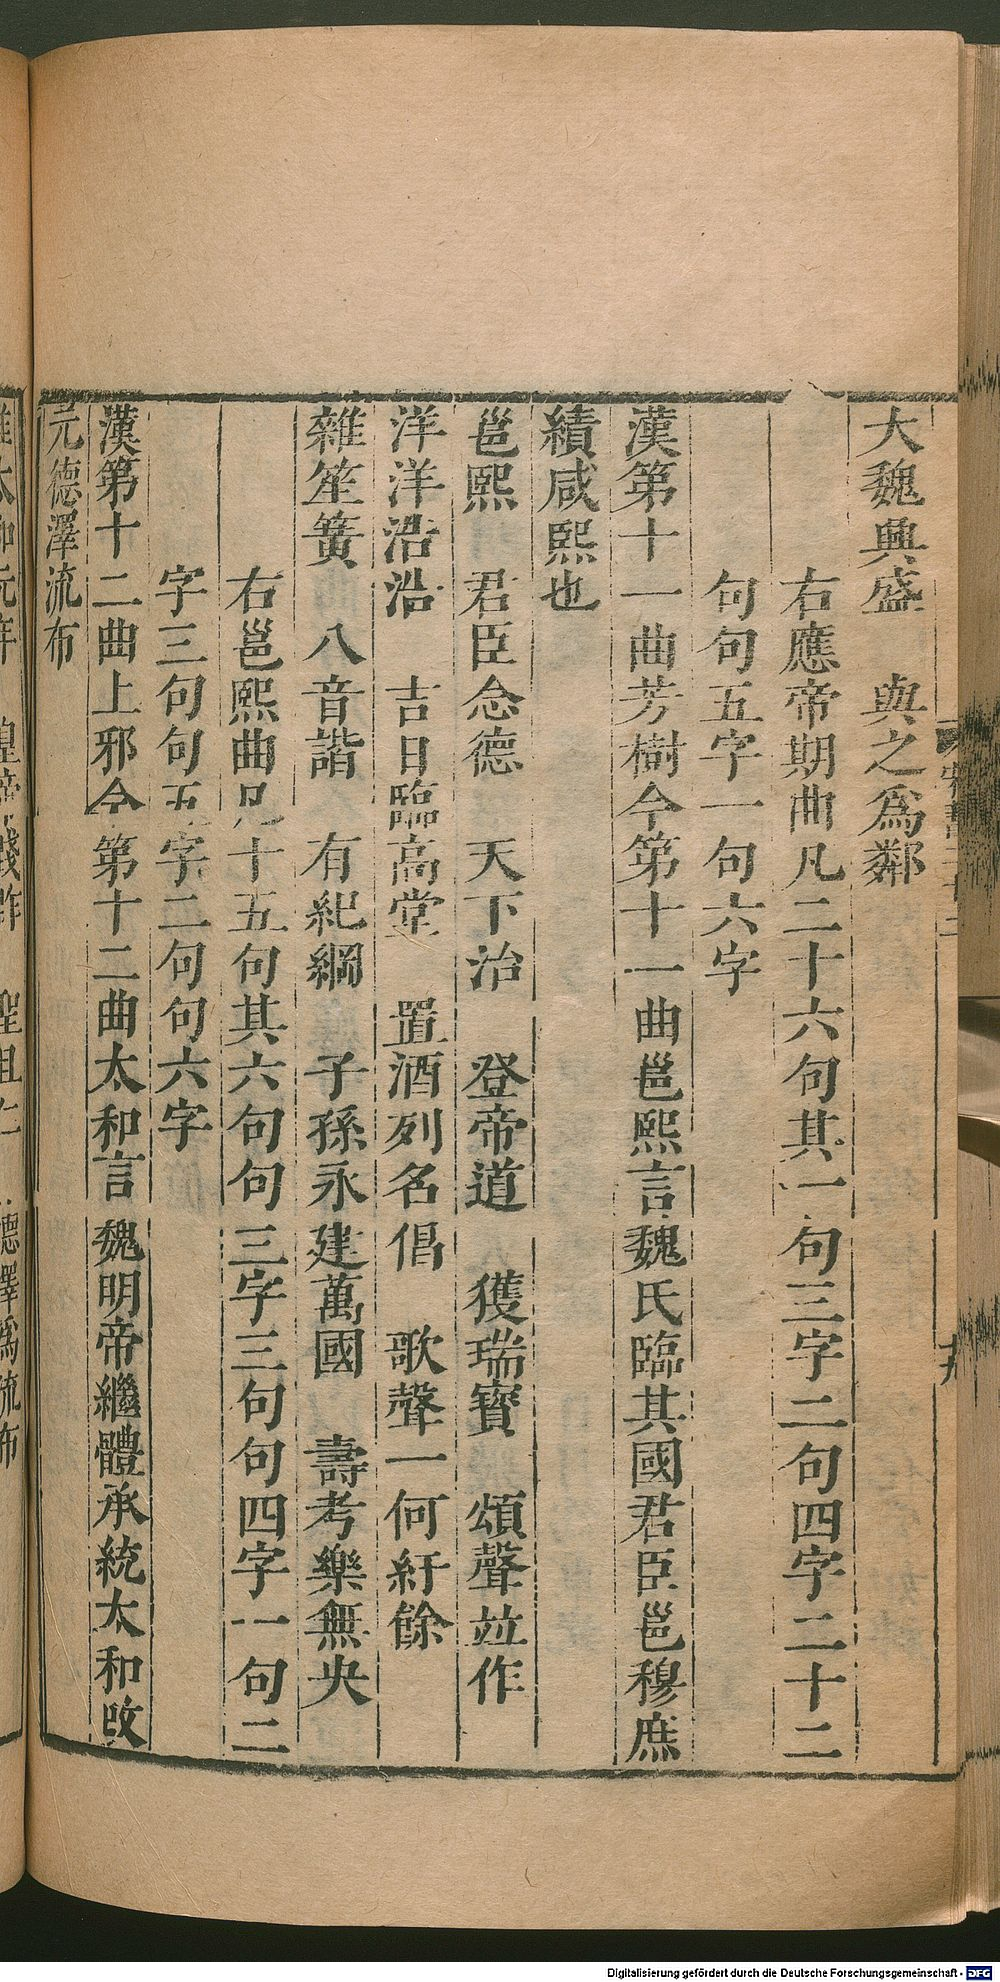 大魏興盛　與之爲鄰
右應帝期曲凡二十六句其一句三字二句四字二十二
句句五字一句六字
漢第十一曲芳樹今第十一曲邕熙言魏氏臨其國君臣邕穆庶
績咸熙也
邕熙　君臣念德　天下治　登帝道　獲瑞寶　頌聲竝作
洋洋浩浩　吉日臨高堂　置酒列名倡　歌聲一何紆餘
雜笙簧　八音諧　有紀綱　子孫永建萬國　壽考樂無央
右邕熙曲凡十五句其六句句三字三句句四字一句二
字三句句五字二句句六字
漢第十二曲上邪今第十二曲太和言魏明帝繼體承統太和改
元德澤流布
Digitalisierung gefördert durch die Deutsche Forschungsgemeinschaft - DFG